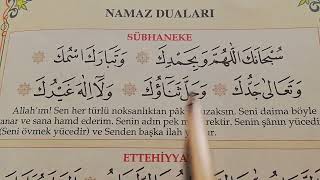 NAMAZ DUALARI
SÜBHANEKE
سُبْحَانَكَ اللّٰهُمَّ وَبِحَمْدِكَ وَتَبَارَكَ اسْمُكَ
وَتَعَالٰى جَدُّكَ وَجَلَّ ثَنَاۤؤُكَ وَلَاۤ اِلٰهَ غَيْرُكَ
Allah'ım! Sen her türlü noksanlıktan pâk uzaksın. Seni daima böyle
anar ve sana hamd ederim. Senin adın pek mü rektir. Senin şânın yücedir
(Seni övmek yücedir) ve Senden başka ilah yoktur.
ETTEHİYYA